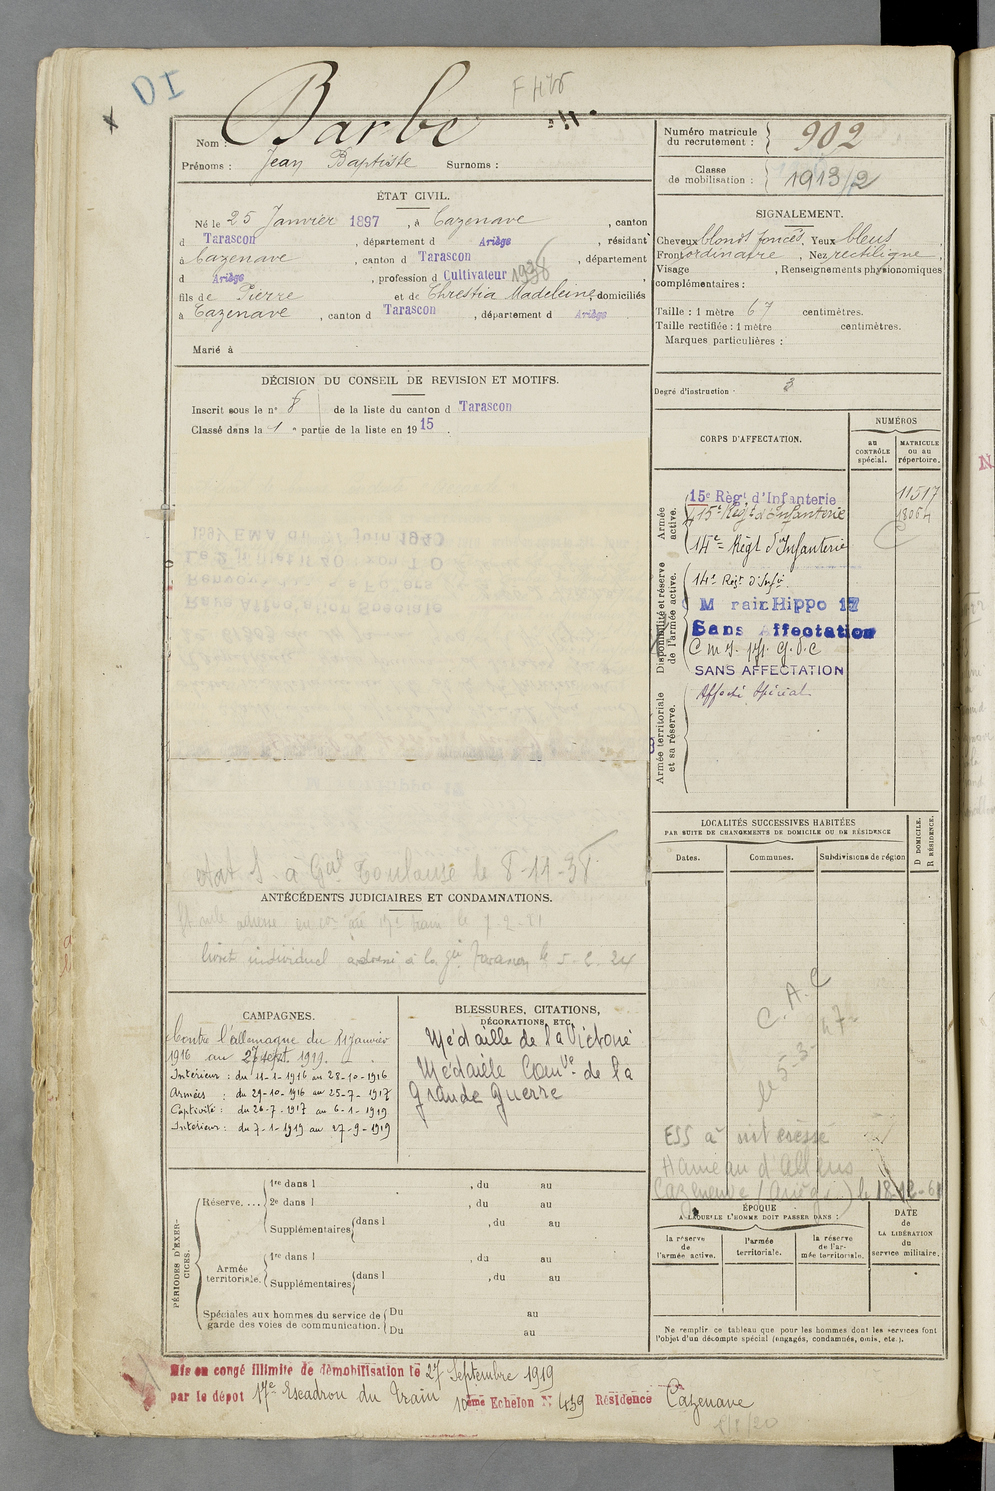 DI
Nom : Barbe
Prénoms : Jean Baptiste Surnoms :
Numéro matricule du recrutement : 902
Classe de mobilisation : 1913/2
ÉTAT CIVIL.
Né le 25 Janvier 1897, à Cazenave, canton
d Tarascon, département d Ariège, résidant
à Cazenave, canton d Tarascon, département
d Ariège, profession d Cultivateur 1938
fils de Pierre et de Chrestia Madeleine domiciliés
à Cazenave, canton d Tarascon, département d Ariège
Marié à
SIGNALEMENT.
Cheveux blonds foncés, Yeux bleus,
Front ordinaire, Nez rectiligne,
Visage, Renseignements physionomiques
complémentaires :
Taille : 1 mètre 67 centimètres.
Taille rectifiée : 1 mètre centimètres.
Marques particulières :
Degré d'instruction 3
DÉCISION DU CONSEIL DE REVISION ET MOTIFS.
Inscrit sous le n° 8 de la liste du canton d Tarascon
Classé dans la 1 e partie de la liste en 1915.
CORPS D'AFFECTATION.
NUMÉROS
au CONTRÔLE spécial.
MATRICULE ou au répertoire.
Armée active.
15e Règt d'Infanterie 11517
15e Régt d'Infanterie
14e Régt d'Infanterie
Disponibilité et réserve de l'armée active.
14e Régt d'Infie
M rair Hippo 17
Sans Affectation
SANS AFFECTATION
Armée territoriale et sa réserve.
Affecté Spécial
LOCALITÉS SUCCESSIVES HABITÉES
PAR SUITE DE CHANGEMENTS DE DOMICILE OU DE RÉSIDENCE
Dates.
Communes.
Subdivisions de région
D DOMICILE.
R RÉSIDENCE.
à Gal Toulouse le 8-11-38
ANTÉCÉDENTS JUDICIAIRES ET CONDAMNATIONS.
livret individuel adressé à la gie Tarascon le 5-2-24
C.A.C
le 5-3-47
CAMPAGNES.
Contre l'allemagne du 11 Janvier
1916 au 27 sept. 1919.
Intérieur : du 11-1-1916 au 28-10-1916
Armées : du 29-10-1916 au 25-7-1917
Captivité : du 26-7-1917 au 6-1-1919
Intérieur : du 7-1-1919 au 27-9-1919
BLESSURES, CITATIONS,
DÉCORATIONS, ETC.
Médaille de la Victoire
Médaille Comve de la
Grande Guerre
ESS à
Hameau d'Allens
Cazenave (Ariège) le 18-12-61
PÉRIODES D'EXERCICES.
Réserve. ....
1re dans l , du au
2e dans l , du au
Supplémentaires dans l , du au
Armée territoriale.
1re dans l , du au
Supplémentaires dans l , du au
Spéciales aux hommes du service de garde des voies de communication.
Du au
Du au
ÉPOQUE
A LAQUELLE L'HOMME DOIT PASSER DANS :
la réserve de l'armée active.
l'armée territoriale.
la réserve de l'armée territoriale.
DATE de LA LIBÉRATION du service militaire.
Ne remplir ce tableau que pour les hommes dont les services font
l'objet d'un décompte spécial (engagés, condamnés, omis, etc.).
Mis en congé illimité de démobilisation le 27 Septembre 1919
par le dépôt 17e Escadron du Train 10ème Echelon N° 459 Résidence Cazenave
1/1/20